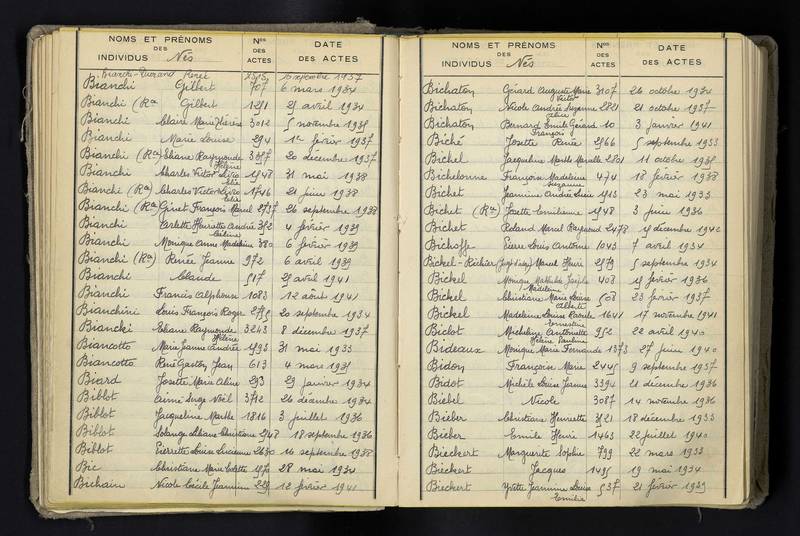 NOMS ET PRÉNOMS
DES
INDIVIDUS Nés
Nos DES ACTES
DATE DES ACTES
Bianchi Renée 1937
Bianchi Gilbert 707 6 mars 1934
Bianchi (Ron) Gilbert 1251 25 avril 1934
Bianchi Claire Marie Thérèse 3012 5 novembre 1935
Bianchi Marie Louise 294 1er février 1937
Bianchi (Ron) Eliane Raymonde Hélène 20 décembre 1937
Bianchi Charles Victor Livio Elie 1548 31 mai 1938
Bianchi (Ron) Charles Victor Livio Elie 1746 21 juin 1938
Bianchi (Ron) Ginet François Marcel 2737 26 septembre 1938
Bianchi Arlette Henriette Andrée 352 4 février 1939
Bianchi Monique Anne Madeleine 380 6 février 1939
Bianchi (Ron) Renée Jeanne 972 6 avril 1939
Bianchi Claude 917 29 avril 1941
Bianchi Francis Alphonse 1083 12 août 1941
Bianchini Louis François Roger 20 septembre 1934
Biancki Eliane Raymonde Hélène 3243 8 décembre 1937
Biancotto Marie Jeanne Andrée 1593 31 mai 1933
Biancotto René Gaston Jean 613 4 mars 1935
Biard Josette Marie Aline 293 29 janvier 1934
Biblot Aimé Serge Noël 3712 26 décembre 1934
Biblot Jacqueline Marthe 1816 3 juillet 1936
Biblot Solange Liliane Christiane 2548 18 septembre 1936
Biblot Pierrette Louise Lucienne 2630 16 septembre 1938
Bic Christiane Marie Colette 1570 28 mai 1934
Bichain Nicole Cécile Jeannine 229 12 février 1941
NOMS ET PRÉNOMS
DES
INDIVIDUS Nés
Nos DES ACTES
DATE DES ACTES
Bichaton Gérard Auguste Marie Victor 3107 26 octobre 1934
Bichaton Nicole Andrée Suzanne Alice 2821 21 octobre 1937
Bichaton Bernard Emile Gérard François 10 3 janvier 1941
Biché Josette Renée 2566 5 septembre 1933
Bichel Jacqueline Marthe 2801 11 octobre 1935
Bichelonne Françoise Madeleine Suzanne 474 18 février 1938
Bichet Jeannine Andrée 1513 23 mai 1933
Bichet (Ron) Josette Emilienne 1548 3 juin 1936
Bichet Roland Marcel Raymond 2478 9 décembre 1942
Bichoffe Pierre Louis Antoine 1043 7 avril 1934
Bickel-Richier Marcel Henri 2579 5 septembre 1934
Bickel Monique Mathilde Josèphe Madeleine 408 15 février 1936
Bickel Christiane Marie Louise Alberte 508 23 février 1937
Bickel Madeleine Louise Ernestine 1641 17 novembre 1941
Biclot Micheline Antoinette Hélène Pauline 952 22 avril 1940
Bideaux Monique Marie Fernande 1373 27 juin 1940
Bidon François Marie 2445 9 septembre 1937
Bidot Michèle Louise Jeanne 3394 21 décembre 1936
Biebel Nicole 3087 14 novembre 1936
Bieber Christiane Henriette 3521 18 décembre 1933
Bieber Emile Henri 1463 22 juillet 1940
Bieckert Marguerite Sophie 799 22 mars 1933
Bieckert Jacques 1495 19 mai 1934
Bieckert Yvette Jeannine Louise Emilie 537 21 février 1939